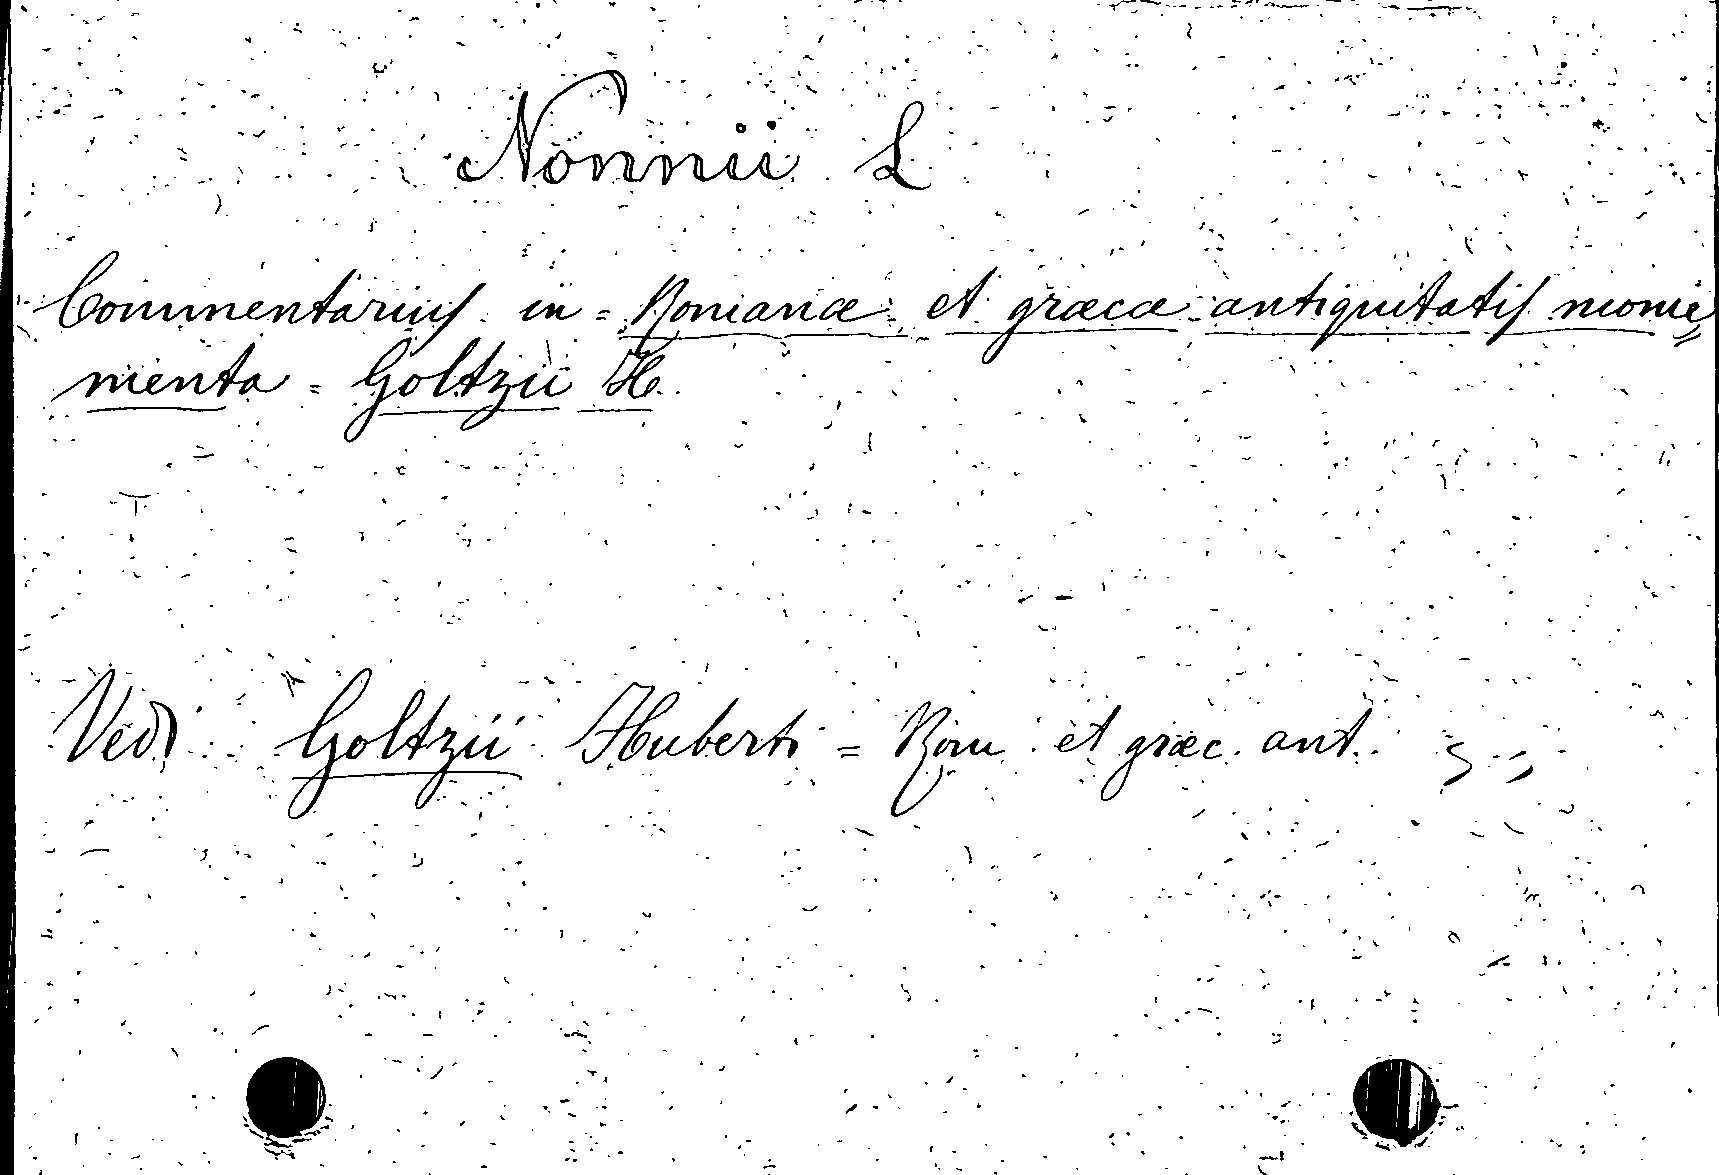 Nonnii L
Commentarius in = Romanæ et græcæ antiquitatis monu=
menta = Goltzii H.
Vedi Goltzii Huberti = Rom et græc. ant.